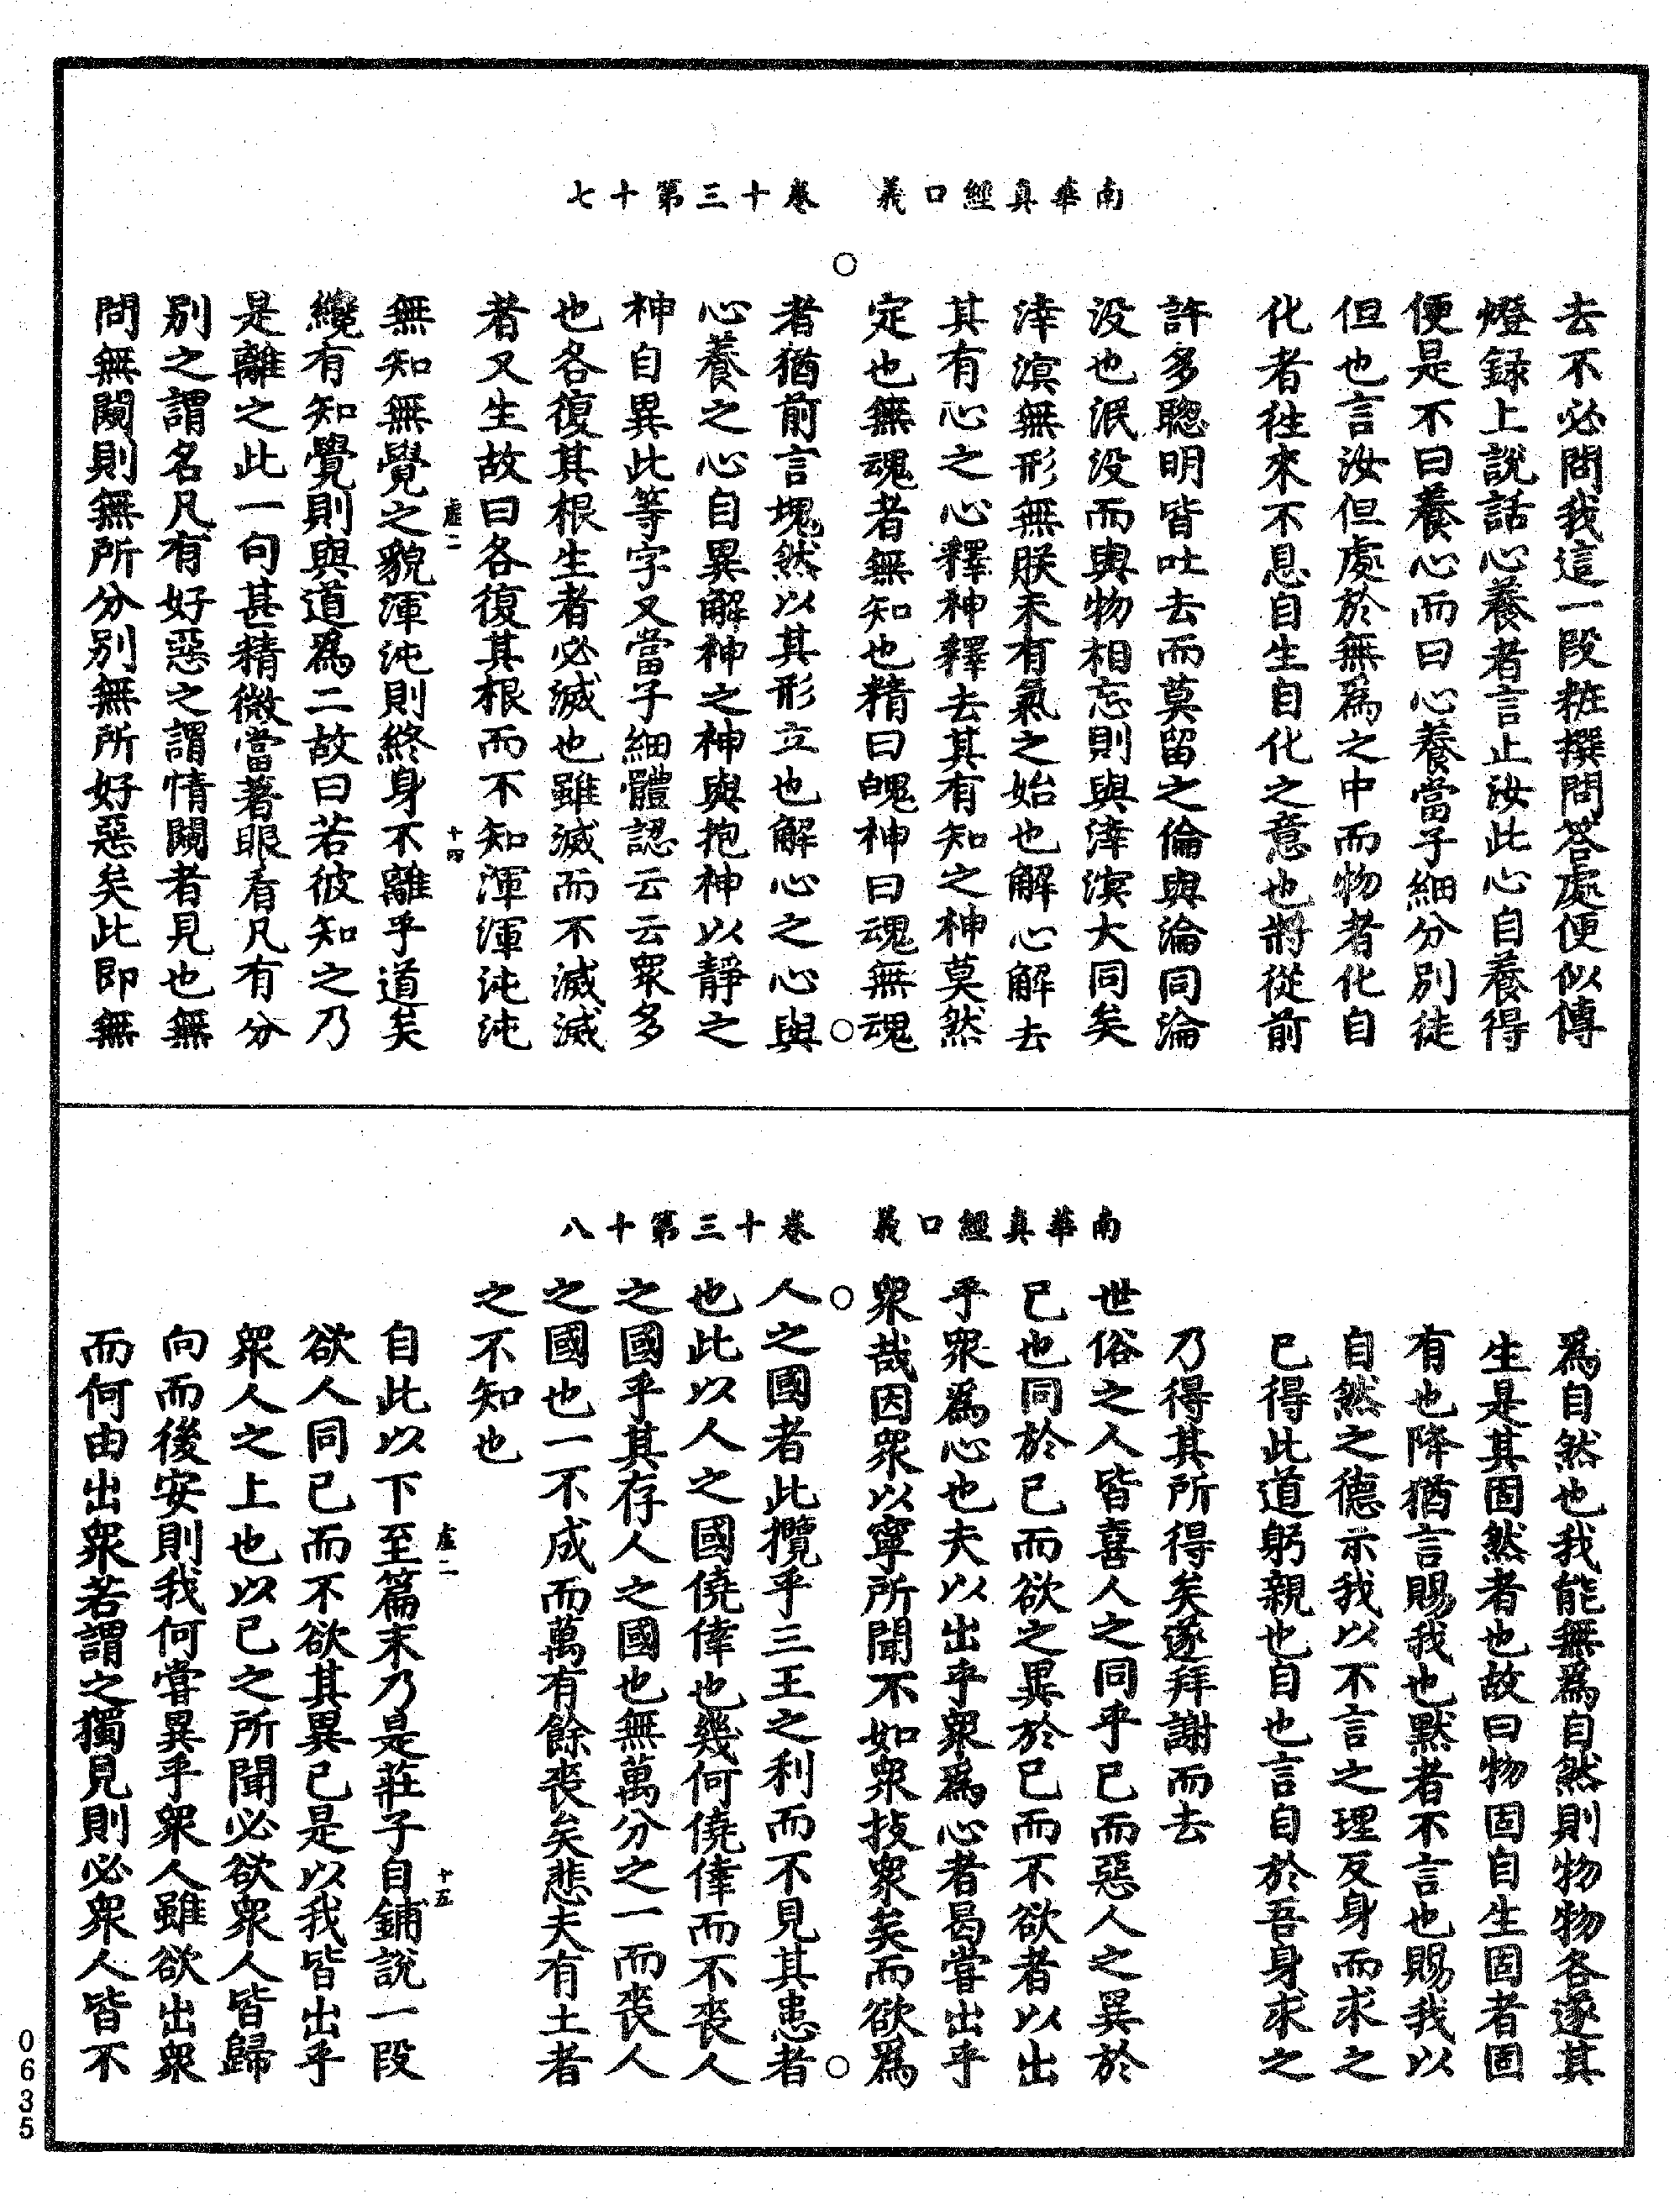 南華真經口義　卷十三第十七
去不必問我這一段粧撰問答處便似傳
燈録上說話心養者言止汝此心自養得
便是不曰養心而曰心養當子細分別徒
但也言汝但處於無爲之中而物者化自
化者往來不息自生自化之意也將從前
許多聰明皆吐去而莫留之倫與淪同淪
没也泯没而與物相忘則與涬溟大同矣
涬溟無形無朕未有氣之始也解心解去
其有心之心釋神釋去其有知之神莫然
定也無魂者無知也精曰魄神曰魂無魂
者猶前言塊然以其形立也解心之心與
心養之心自異解神之神與抱神以靜之
神自異此等字又當子細體認云云眾多
也各復其根生者必滅也雖滅而不滅滅
者又生故曰各復其根而不知渾渾沌沌
虛二　十四
無知無覺之貌渾沌則終身不離乎道矣
纔有知覺則與道爲二故曰若彼知之乃
是離之此一句甚精微當著眼看凡有分
別之謂名凡有好惡之謂情闚者見也無
問無闚則無所分別無所好惡矣此即無
南華真經口義　卷十三第十八
爲自然也我能無爲自然則物物各遂其
生是其固然者也故曰物固自生固者固
有也降猶言賜我也默者不言也賜我以
自然之德示我以不言之理反身而求之
已得此道躬親也自也言自於吾身求之
乃得其所得矣遂拜謝而去
世俗之人皆喜人之同乎己而惡人之異於
己也同於己而欲之異於己而不欲者以出
乎眾爲心也夫以出乎眾爲心者曷嘗出乎
眾哉因眾以寧所聞不如眾技眾矣而欲爲
人之國者此攬乎三王之利而不見其患者
也此以人之國僥倖也幾何僥倖而不喪人
之國乎其存人之國也無萬分之一而喪人
之國也一不成而萬有餘喪矣悲夫有土者
之不知也
虛二　十五
自此以下至篇末乃是莊子自鋪說一段
欲人同己而不欲其異己是以我皆出乎
眾人之上也以己之所聞必欲眾人皆歸
向而後安則我何嘗異乎眾人雖欲出眾
而何由出眾若謂之獨見則必眾人皆不
0635